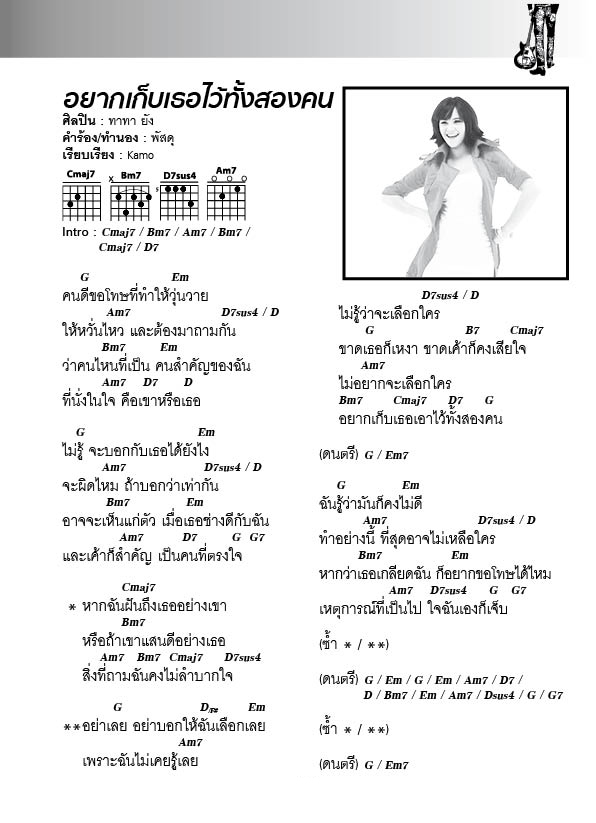 อยากเก็บเธอไว้ทั้งสองคน
ศิลปิน : ทาทา ยัง
คำร้อง/ทำนอง : พัสดุ
เรียบเรียง : Kamo
Cmaj7 Bm7 D7sus4 Am7
x o o o
5
Intro : Cmaj7 / Bm7 / Am7 / Bm7 /
Cmaj7 / D7
G Em
คนดีขอโทษที่ทำให้วุ่นวาย
Am7 D7sus4 / D
ให้หวั่นไหว และต้องมาถามกัน
Bm7 Em
ว่าคนไหนที่เป็น คนสำคัญของฉัน
Am7 D7 D
ที่นั่งในใจ คือเขาหรือเธอ
G Em
ไม่รู้ จะบอกกับเธอได้ยังไง
Am7 D7sus4 / D
จะผิดไหม ถ้าบอกว่าเท่ากัน
Bm7 Em
อาจจะเห็นแก่ตัว เมื่อเธอช่างดีกับฉัน
Am7 D7 G G7
และเค้าก็สำคัญ เป็นคนที่ตรงใจ
Cmaj7
* หากฉันฝันถึงเธออย่างเขา
Bm7
หรือถ้าเขาแสนดีอย่างเธอ
Am7 Bm7 Cmaj7 D7sus4
สิ่งที่ถามฉันคงไม่ลำบากใจ
G D/F# Em
**อย่าเลย อย่าบอกให้ฉันเลือกเลย
Am7
เพราะฉันไม่เคยรู้เลย
D7sus4 / D
ไม่รู้ว่าจะเลือกใคร
G B7 Cmaj7
ขาดเธอก็เหงา ขาดเค้าก็คงเสียใจ
Am7
ไม่อยากจะเลือกใคร
Bm7 Cmaj7 D7 G
อยากเก็บเธอเอาไว้ทั้งสองคน
(ดนตรี) G / Em7
G Em
ฉันรู้ว่ามันก็คงไม่ดี
Am7 D7sus4 / D
ทำอย่างนี้ ที่สุดอาจไม่เหลือใคร
Bm7 Em
หากว่าเธอเกลียดฉัน ก็อยากขอโทษได้ไหม
Am7 D7sus4 G G7
เหตุการณ์ที่เป็นไป ใจฉันเองก็เจ็บ
(ซ้ำ * / **)
(ดนตรี) G / Em / G / Em / Am7 / D7 /
D / Bm7 / Em / Am7 / Dsus4 / G / G7
(ซ้ำ * / **)
(ดนตรี) G / Em7